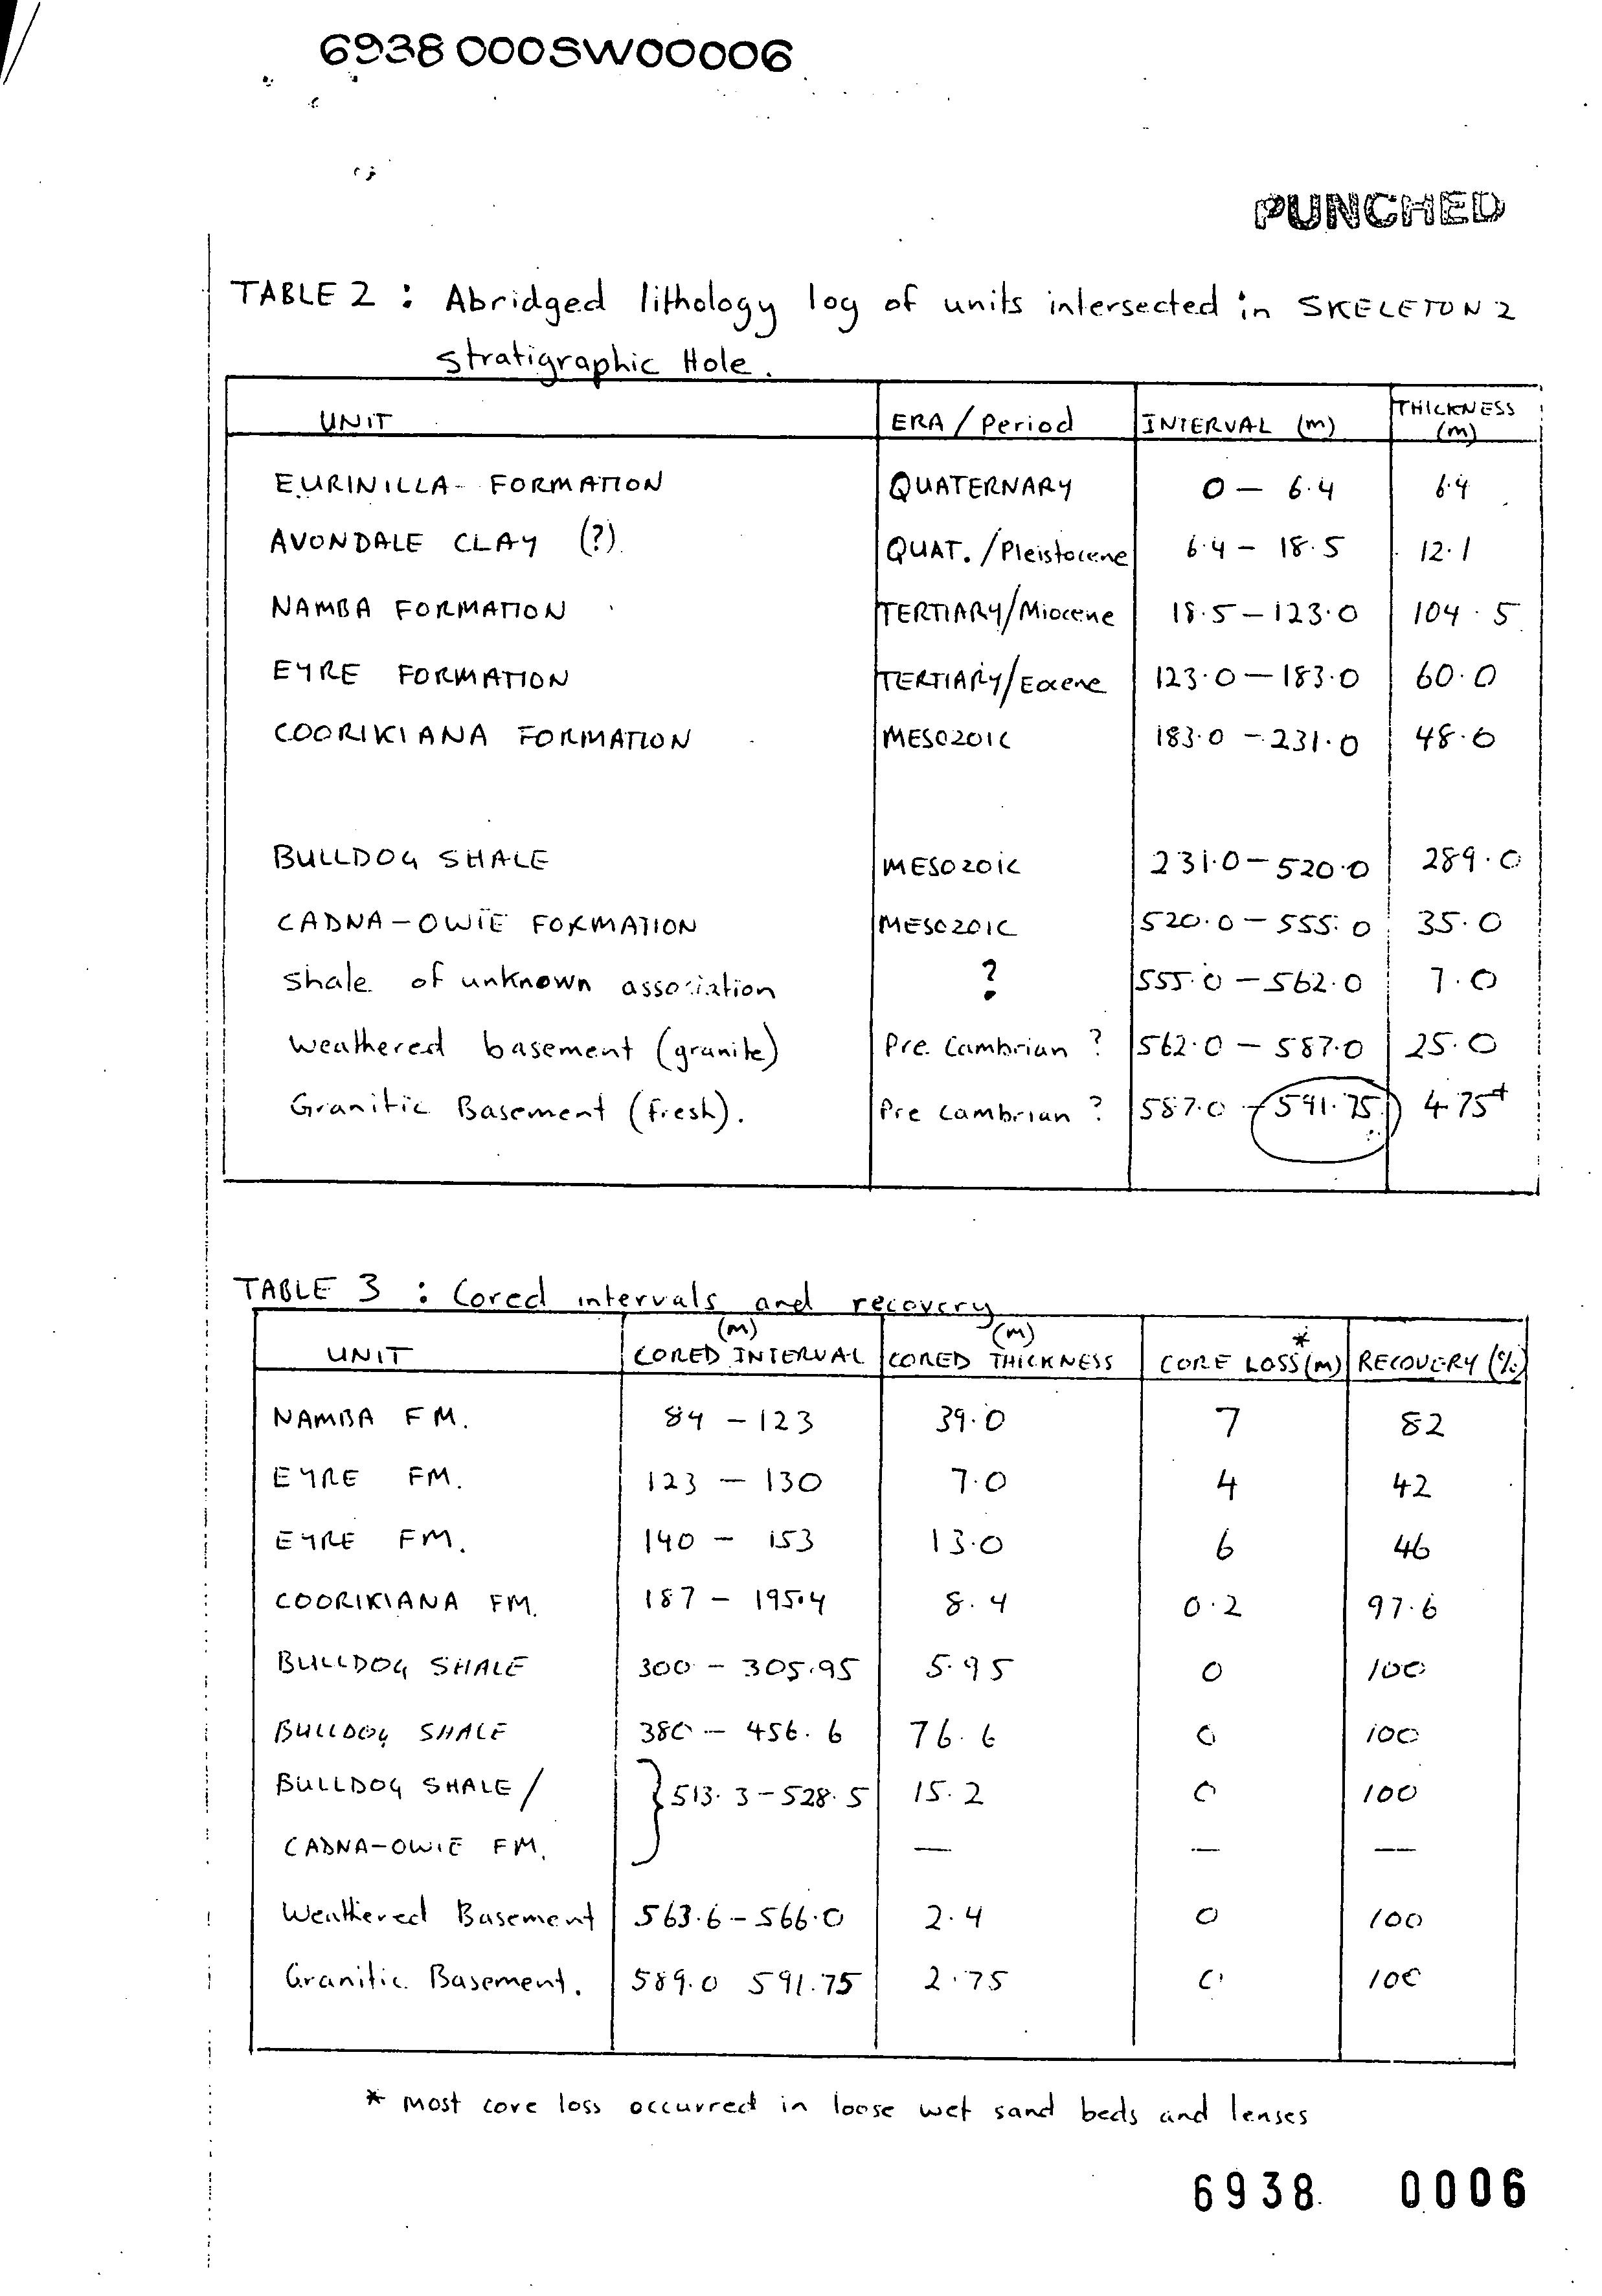 6938000SW00006
PUNCHED
TABLE 2 : Abridged lithology log of units intersected in SKELETON 2
Stratigraphic Hole.
UNIT ERA / Period INTERVAL (m) THICKNESS (m)
EURINILLA FORMATION QUATERNARY 0 — 6.4 6.4
AVONDALE CLAY (?) QUAT. / Pleistocene 6.4 — 18.5 12.1
NAMBA FORMATION TERTIARY/Miocene 18.5 — 123.0 104.5
EYRE FORMATION TERTIARY/Eocene 123.0 — 183.0 60.0
COORIKIANA FORMATION MESOZOIC 183.0 — 231.0 48.0
BULLDOG SHALE MESOZOIC 231.0 — 520.0 289.0
CADNA-OWIE FORMATION MESOZOIC 520.0 — 555.0 35.0
Shale of unknown association ? 555.0 — 562.0 7.0
Weathered basement (granite) Pre Cambrian ? 562.0 — 587.0 25.0
Granitic Basement (fresh). Pre Cambrian ? 587.0 — 591.75 4.75+
TABLE 3 : Cored intervals and recovery
UNIT (m) CORED INTERVAL (m) CORED THICKNESS * CORE LOSS (m) RECOVERY (%)
NAMBA FM. 84 — 123 39.0 7 82
EYRE FM. 123 — 130 7.0 4 42
EYRE FM. 140 — 153 13.0 6 46
COORIKIANA FM. 187 — 195.4 8.4 0.2 97.6
BULLDOG SHALE 300 — 305.95 5.95 0 100
BULLDOG SHALE 380 — 456.6 76.6 0 100
BULLDOG SHALE / } 513.3 — 528.5 15.2 0 100
CADNA-OWIE FM. — — —
Weathered Basement 563.6 — 566.0 2.4 0 100
Granitic Basement. 589.0 591.75 2.75 0 100
* most core loss occurred in loose wet sand beds and lenses
6938 0006